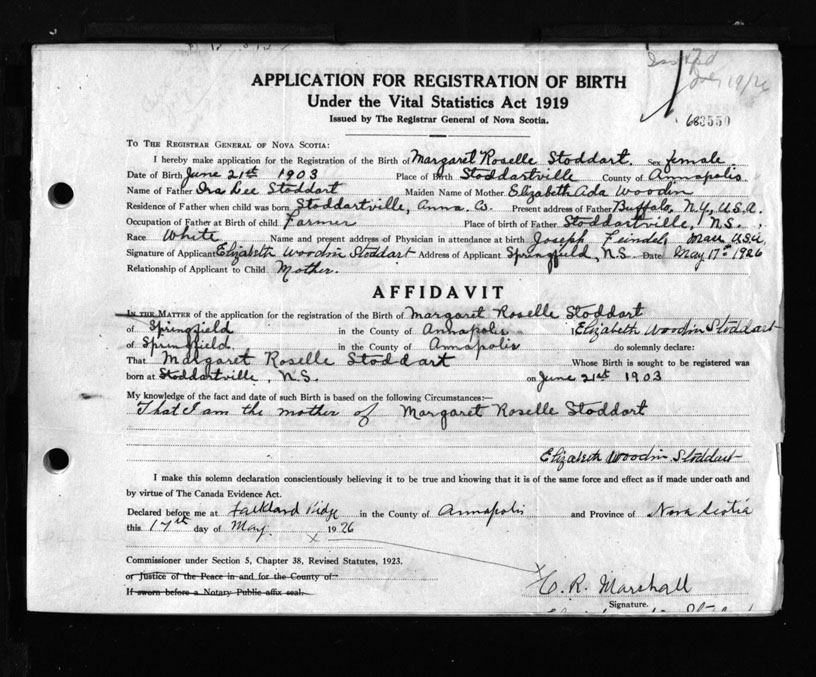 APPLICATION FOR REGISTRATION OF BIRTH
Under the Vital Statistics Act 1919
Issued by The Registrar General of Nova Scotia.
683550
TO THE REGISTRAR GENERAL OF NOVA SCOTIA:
I hereby make application for the Registration of the Birth of Margaret Roselle Stoddart. Sex female.
Date of Birth June 21st 1903 Place of Birth Stoddartville County of Annapolis
Name of Father Ira Lee Stoddart Maiden Name of Mother Elizabeth Ada Woodin
Residence of Father when child was born Stoddartville, Anna. Co. Present address of Father Buffalo, N.Y., U.S.A.
Occupation of Father at Birth of child Farmer Place of birth of Father Stoddartville, N.S.
Race White Name and present address of Physician in attendance at birth Joseph Feindel, Mass U.S.A,
Signature of Applicant Elizabeth Woodin Stoddart Address of Applicant Springfield, N.S. Date May 17th 1926
Relationship of Applicant to Child Mother.
AFFIDAVIT
IN THE MATTER of the application for the registration of the Birth of Margaret Roselle Stoddart
of Springfield in the County of Annapolis I Elizabeth Woodin Stoddart
of Springfield. in the County of Annapolis do solemnly declare:
That Margaret Roselle Stoddart Whose Birth is sought to be registered was
born at Stoddartville, N.S. on June 21st 1903
My knowledge of the fact and date of such Birth is based on the following Circumstances:—
That I am the mother of Margaret Roselle Stoddart
Elizabeth Woodin Stoddart
I make this solemn declaration conscientiously believing it to be true and knowing that it is of the same force and effect as if made under oath and
by virtue of The Canada Evidence Act.
Declared before me at Falkland Ridge in the County of Annapolis and Province of Nova Scotia
this 17th day of May. 1926
Commissioner under Section 5, Chapter 38, Revised Statutes, 1923.
or Justice of the Peace in and for the County of
If sworn before a Notary Public affix seal.
C. R. Marshall
Signature.